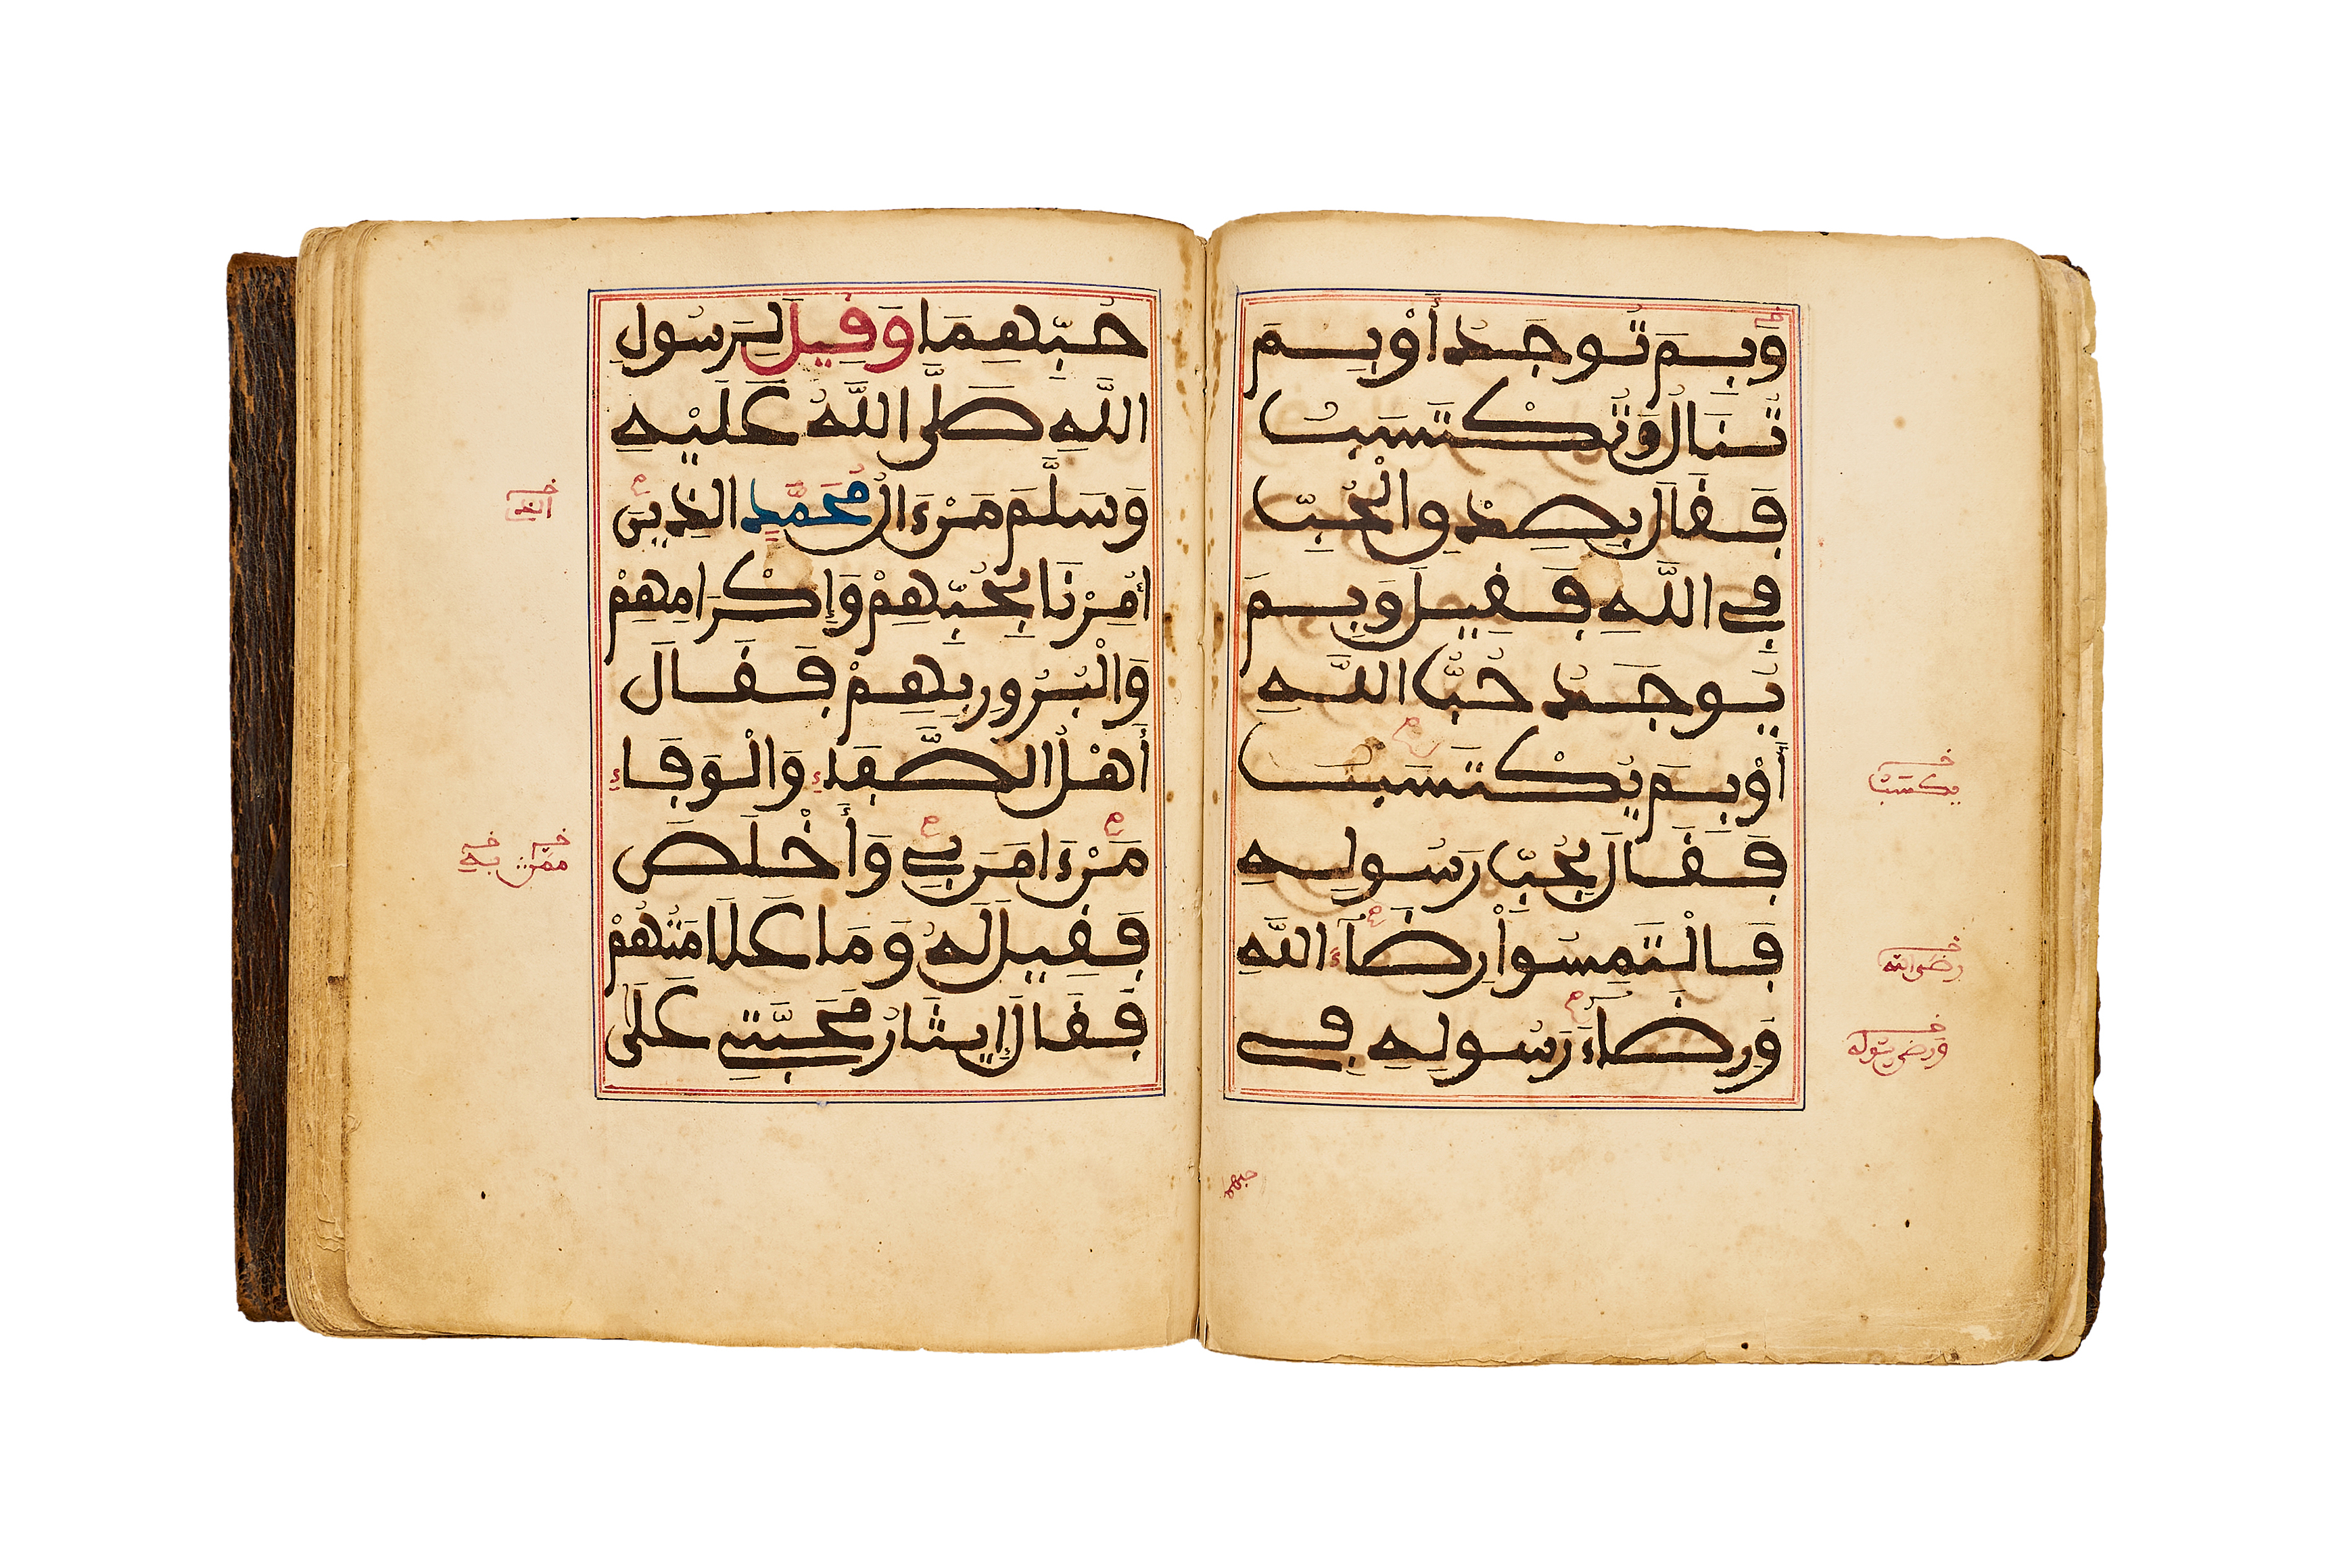 وَبِمَ تُوجَدُ أَوْ بِمَ
تُنَالُ وَتُكْتَسَبُ
فَقَالَ بِصِدْقِ الْحُبِّ
فِي اللَّهِ فَقِيلَ وَبِمَ
يُوجَدُ حُبُّ اللَّهِ
أَوْ بِمَ يُكْتَسَبُ
فَقَالَ بِحُبِّ رَسُولِهِ
فَالْتَمِسُواْ رِضَآءَ اللَّهِ
وَرِضَآءَ رَسُولِهِ فِي
يكتسب
رضى الله
ورضى رسوله
حبهما
حُبِّهِمَا وَقِيلَ لِرَسُولِ
اللَّهِ صَلَّى اللَّهُ عَلَيْهِ
وَسَلَّمَ مَنْ ءَالُ مُحَمَّدٍ الذِينَ
أُمِرْنَا بِحُبِّهِمْ وَإِكْرَامِهِمْ
وَالْبُرُورِ بِهِمْ فَقَالَ
أَهْلُ الصَّفَاءِ وَالْوَفَاءِ
مَنْ ءَامَنَ بِي وَأَخْلَصَ
فَقِيلَ لَهُ وَمَا عَلَامَتُهُمْ
فَقَالَ إِيثَارُ مَحَبَّتِي عَلَى